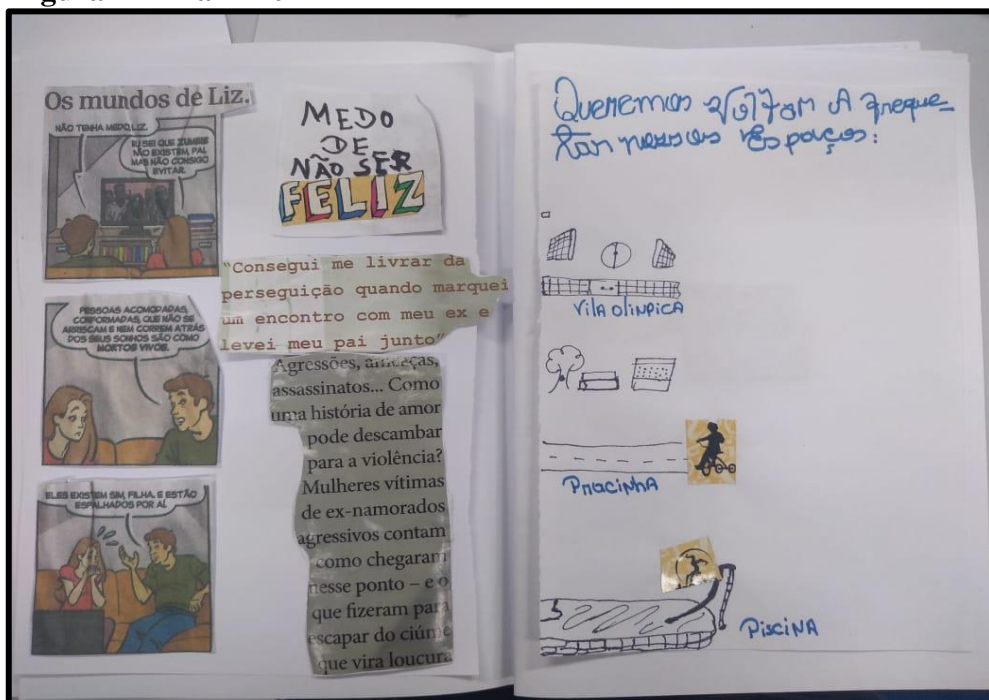 Os mundos de Liz.
NÃO TENHA MEDO, LIZ.
EU SEI QUE ZUMBIS
NÃO EXISTEM, PAI,
MAS NÃO CONSIGO
EVITAR.
PESSOAS ACOMODADAS,
CONFORMADAS, QUE NÃO SE
ARRISCAM E NEM CORREM ATRÁS
DOS SEUS SONHOS SÃO COMO
MORTOS VIVOS.
ELES EXISTEM SIM, FILHA. E ESTÃO
ESPALHADOS POR AÍ.
MEDO
DE
NÃO SER
FELIZ
"Consegui me livrar da
perseguição quando marquei
um encontro com meu ex e
levei meu pai junto"
Agressões, ameaças,
assassinatos... Como
uma história de amor
pode descambar
para a violência?
Mulheres vítimas
de ex-namorados
agressivos contam
como chegaram
nesse ponto – e o
que fizeram para
escapar do ciúme
que vira loucura
Queremos voltar A freque-
tar nossos Espaços:
Vila olinpica
Pracinha
Piscina